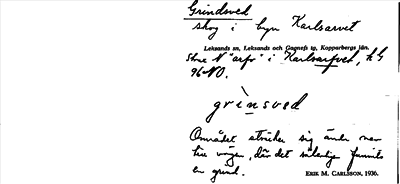 Grindsved
skog i byn Karlsarvet
Leksands sn, Leksands och Gagnefs tg, Kopparbergs län.
Stora N "arfv" i Karlsarfvet, k G
96 NO.
grinsved
Området sträcker sig ända ner
till vägen, där det funnits
en grind. ERIK M. CARLSSON, 1936.